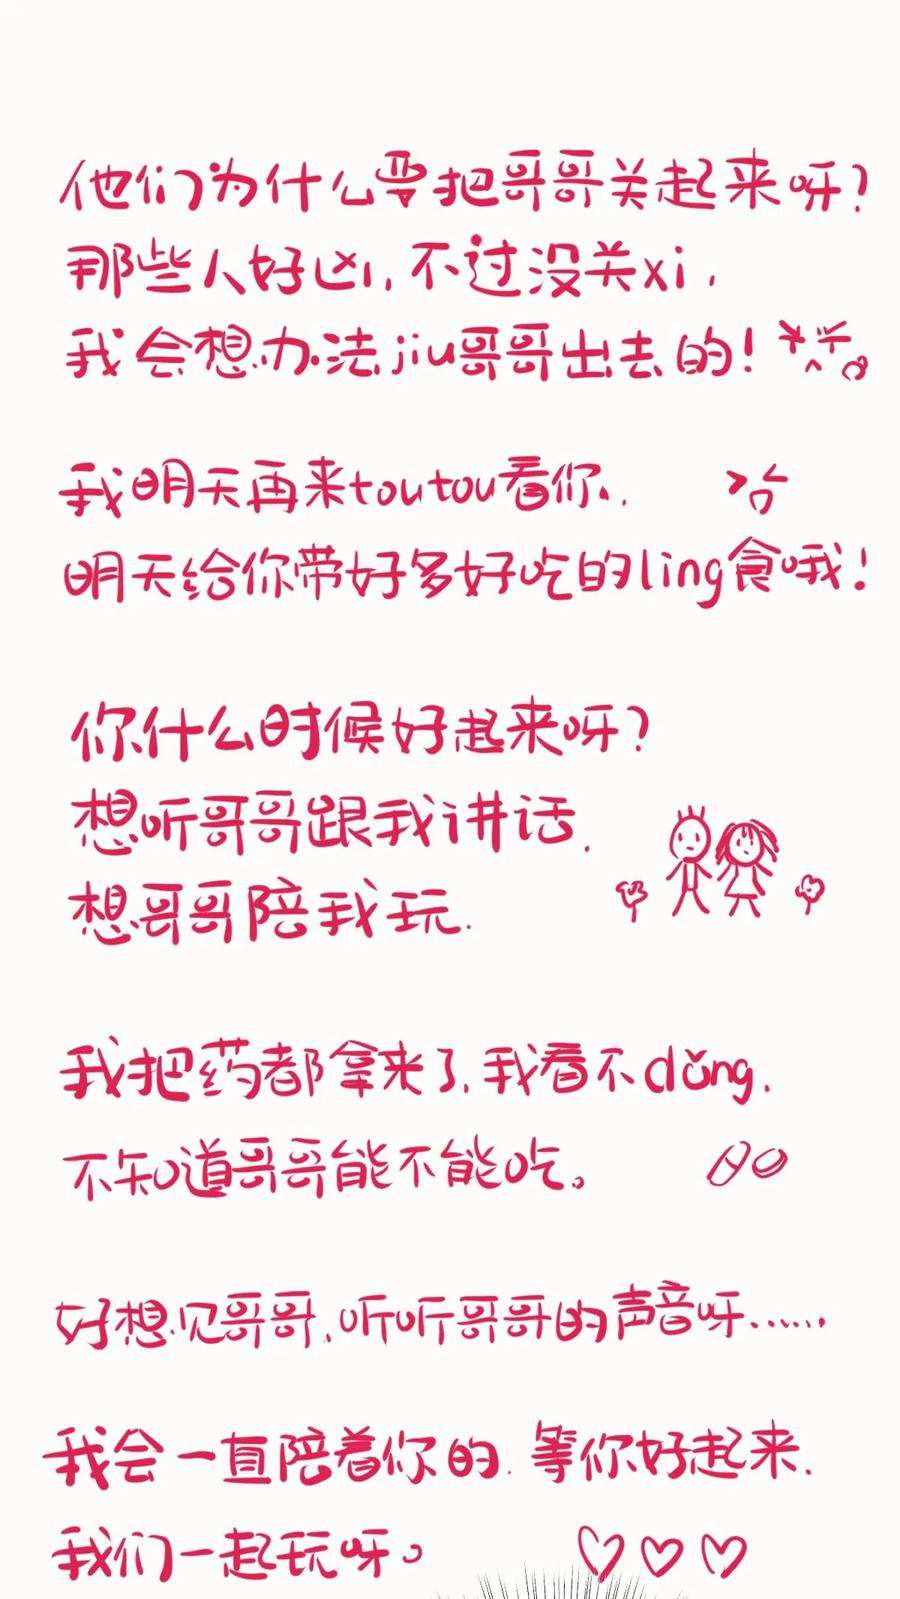 他们为什么要把哥哥关起来呀？
那些人好凶，不过没关xi，
我会想办法jiu哥哥出去的！
我明天再来toutou看你，
明天给你带好多好吃的ling食哦！
你什么时候好起来呀？
想听哥哥跟我讲话，
想哥哥陪我玩.
我把药都拿来了，我看不dǒng，
不知道哥哥能不能吃。
好想见哥哥，听听哥哥的声音呀……
我会一直陪着你的，等你好起来，
我们一起玩呀。